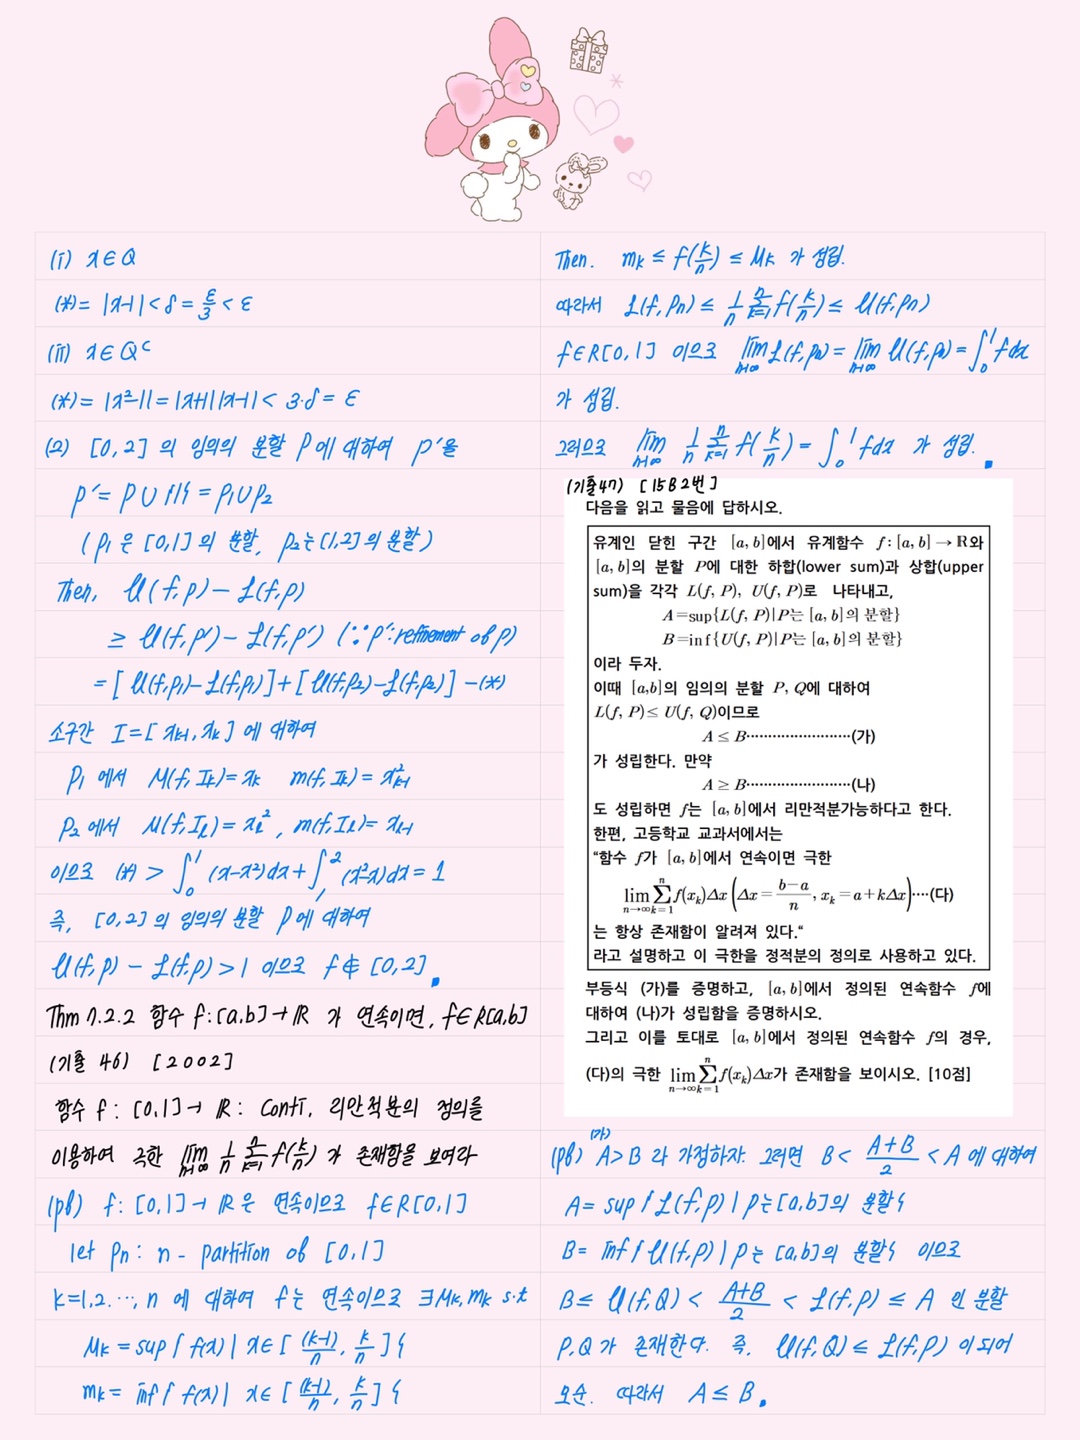 (i) x∈Q
(*)= |x-1| < δ = ε/3 < ε
(ii) x∈Q^c
(*)= |x²-1| = |x+1||x-1| < 3·δ = ε
(2) [0,2] 의 임의의 분할 P에 대하여 P'을
P' = P∪{1} = P₁∪P₂
(P₁은 [0,1]의 분할, P₂는 [1,2]의 분할)
Then, U(f,P) - L(f,P)
≥ U(f,P') - L(f,P') (∵P': refinement of P)
= [U(f,P₁)-L(f,P₁)]+[U(f,P₂)-L(f,P₂)] -(*)
소구간 I=[x_{k-1}, x_k] 에 대하여
P₁ 에서 M(f, I_k)= x_k m(f, I_k)= x²_{k-1}
P₂ 에서 M(f, I_k)= x_k², m(f, I_k)= x_{k-1}
이므로 (*) > ∫₀¹ (x-x²)dx + ∫₁² (x²-x)dx = 1
즉, [0,2]의 임의의 분할 P에 대하여
U(f,P) - L(f,P) > 1 이므로 f∉[0,2].
Thm 7.2.2 함수 f:[a,b]→ℝ 가 연속이면, f∈R[a,b]
(기출 46) [2002]
함수 f: [0,1]→ℝ: Conti. 리만적분의 정의를
이용하여 극한 lim_{n→∞} 1/n Σ_{k=1}^{n} f(k/n) 가 존재함을 보여라
(pf) f: [0,1]→ℝ은 연속이므로 f∈R[0,1]
let Pn: n - partition of [0,1]
k=1,2,…,n 에 대하여 f는 연속이므로 ∃M_k, m_k s.t
M_k = sup{ f(x) | x∈[(k-1)/n, k/n] }
m_k = inf{ f(x) | x∈[(k-1)/n, k/n] }
Then. m_k ≤ f(k/n) ≤ M_k 가 성립.
따라서 L(f, Pn) ≤ 1/n Σ_{k=1}^{n} f(k/n) ≤ U(f, Pn)
f∈R[0,1] 이므로 lim_{n→∞} L(f, Pn) = lim_{n→∞} U(f, Pn) = ∫₀¹ f dx
가 성립.
그러므로 lim_{n→∞} 1/n Σ_{k=1}^{n} f(k/n) = ∫₀¹ f dx 가 성립.
(기출47) [15B 2번]
다음을 읽고 물음에 답하시오.
유계인 닫힌 구간 [a, b]에서 유계함수 f : [a, b]→ℝ와
[a, b]의 분할 P에 대한 하합(lower sum)과 상합(upper
sum)을 각각 L(f, P), U(f, P)로 나타내고,
A=sup{L(f, P)|P는 [a, b]의 분할}
B=inf{U(f, P)|P는 [a, b]의 분할}
이라 두자.
이때 [a,b]의 임의의 분할 P, Q에 대하여
L(f, P)≤ U(f, Q)이므로
A ≤ B························(가)
가 성립한다. 만약
A ≥ B························(나)
도 성립하면 f는 [a, b]에서 리만적분가능하다고 한다.
한편, 고등학교 교과서에서는
“함수 f가 [a, b]에서 연속이면 극한
lim_{n→∞} Σ_{k=1}^{n} f(x_k)Δx (Δx = (b-a)/n, x_k = a+kΔx)····(다)
는 항상 존재함이 알려져 있다.“
라고 설명하고 이 극한을 정적분의 정의로 사용하고 있다.
부등식 (가)를 증명하고, [a, b]에서 정의된 연속함수 f에
대하여 (나)가 성립함을 증명하시오.
그리고 이를 토대로 [a, b]에서 정의된 연속함수 f의 경우,
(다)의 극한 lim_{n→∞} Σ_{k=1}^{n} f(x_k)Δx가 존재함을 보이시오. [10점]
(pf) (가) A>B 라 가정하자. 그러면 B < (A+B)/2 < A 에 대하여
A = sup{ L(f,P) | P는 [a,b]의 분할}
B = inf{ U(f,P) | P는 [a,b]의 분할} 이므로
B ≤ U(f,Q) < (A+B)/2 < L(f,P) ≤ A 인 분할
P,Q가 존재한다. 즉, U(f,Q) ≤ L(f,P) 이 되어
모순. 따라서 A ≤ B.